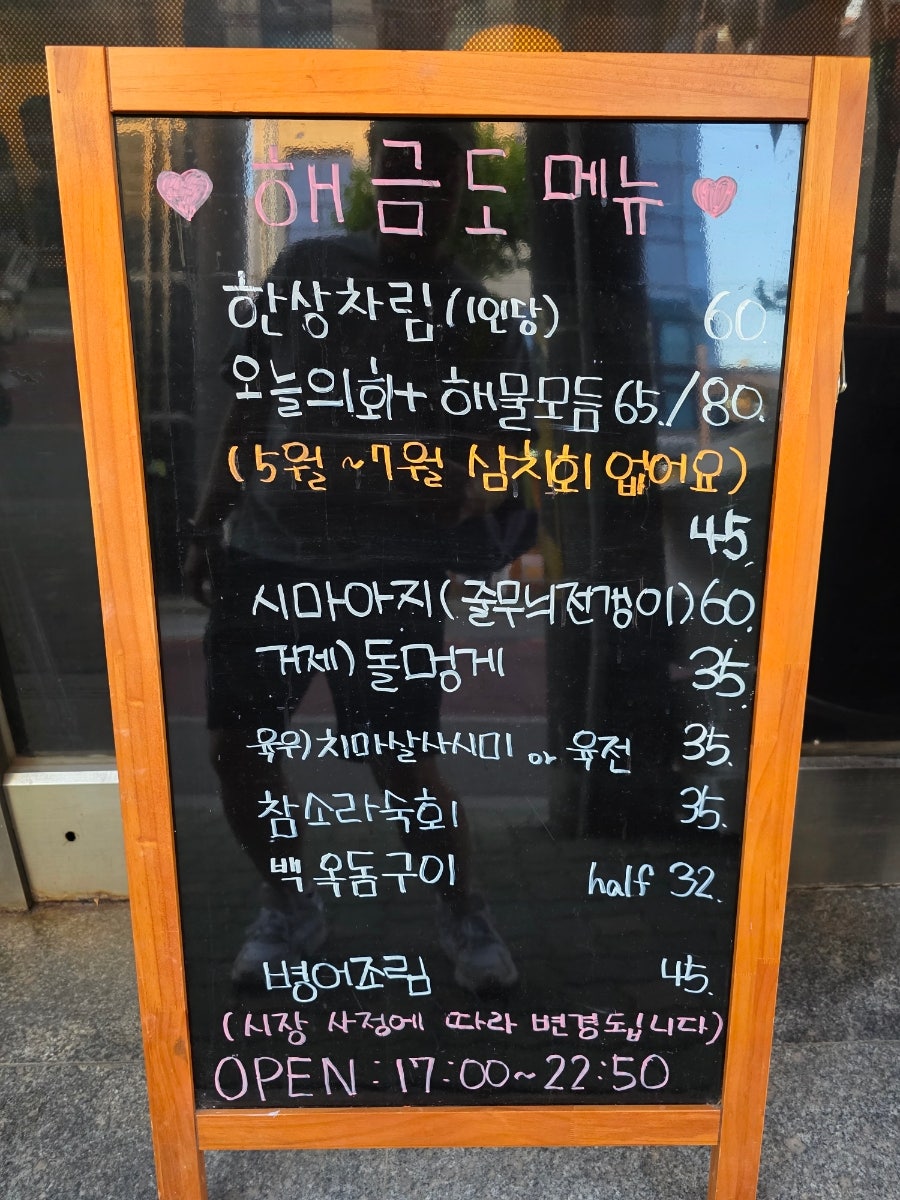 해금도 메뉴
한상차림 (1인당) 60.
오늘의회+ 해물모듬 65./80.
(5월 ~7월 삼치회 없어요)
45.
시마아지 (줄무늬전갱이) 60.
거제) 돌멍게 35.
육우) 치마살사시미 or 육전 35.
참소라숙회 35.
백옥돔구이 half 32.
병어조림 45.
(시장 사정에 따라 변경도입니다)
OPEN : 17:00~22:50